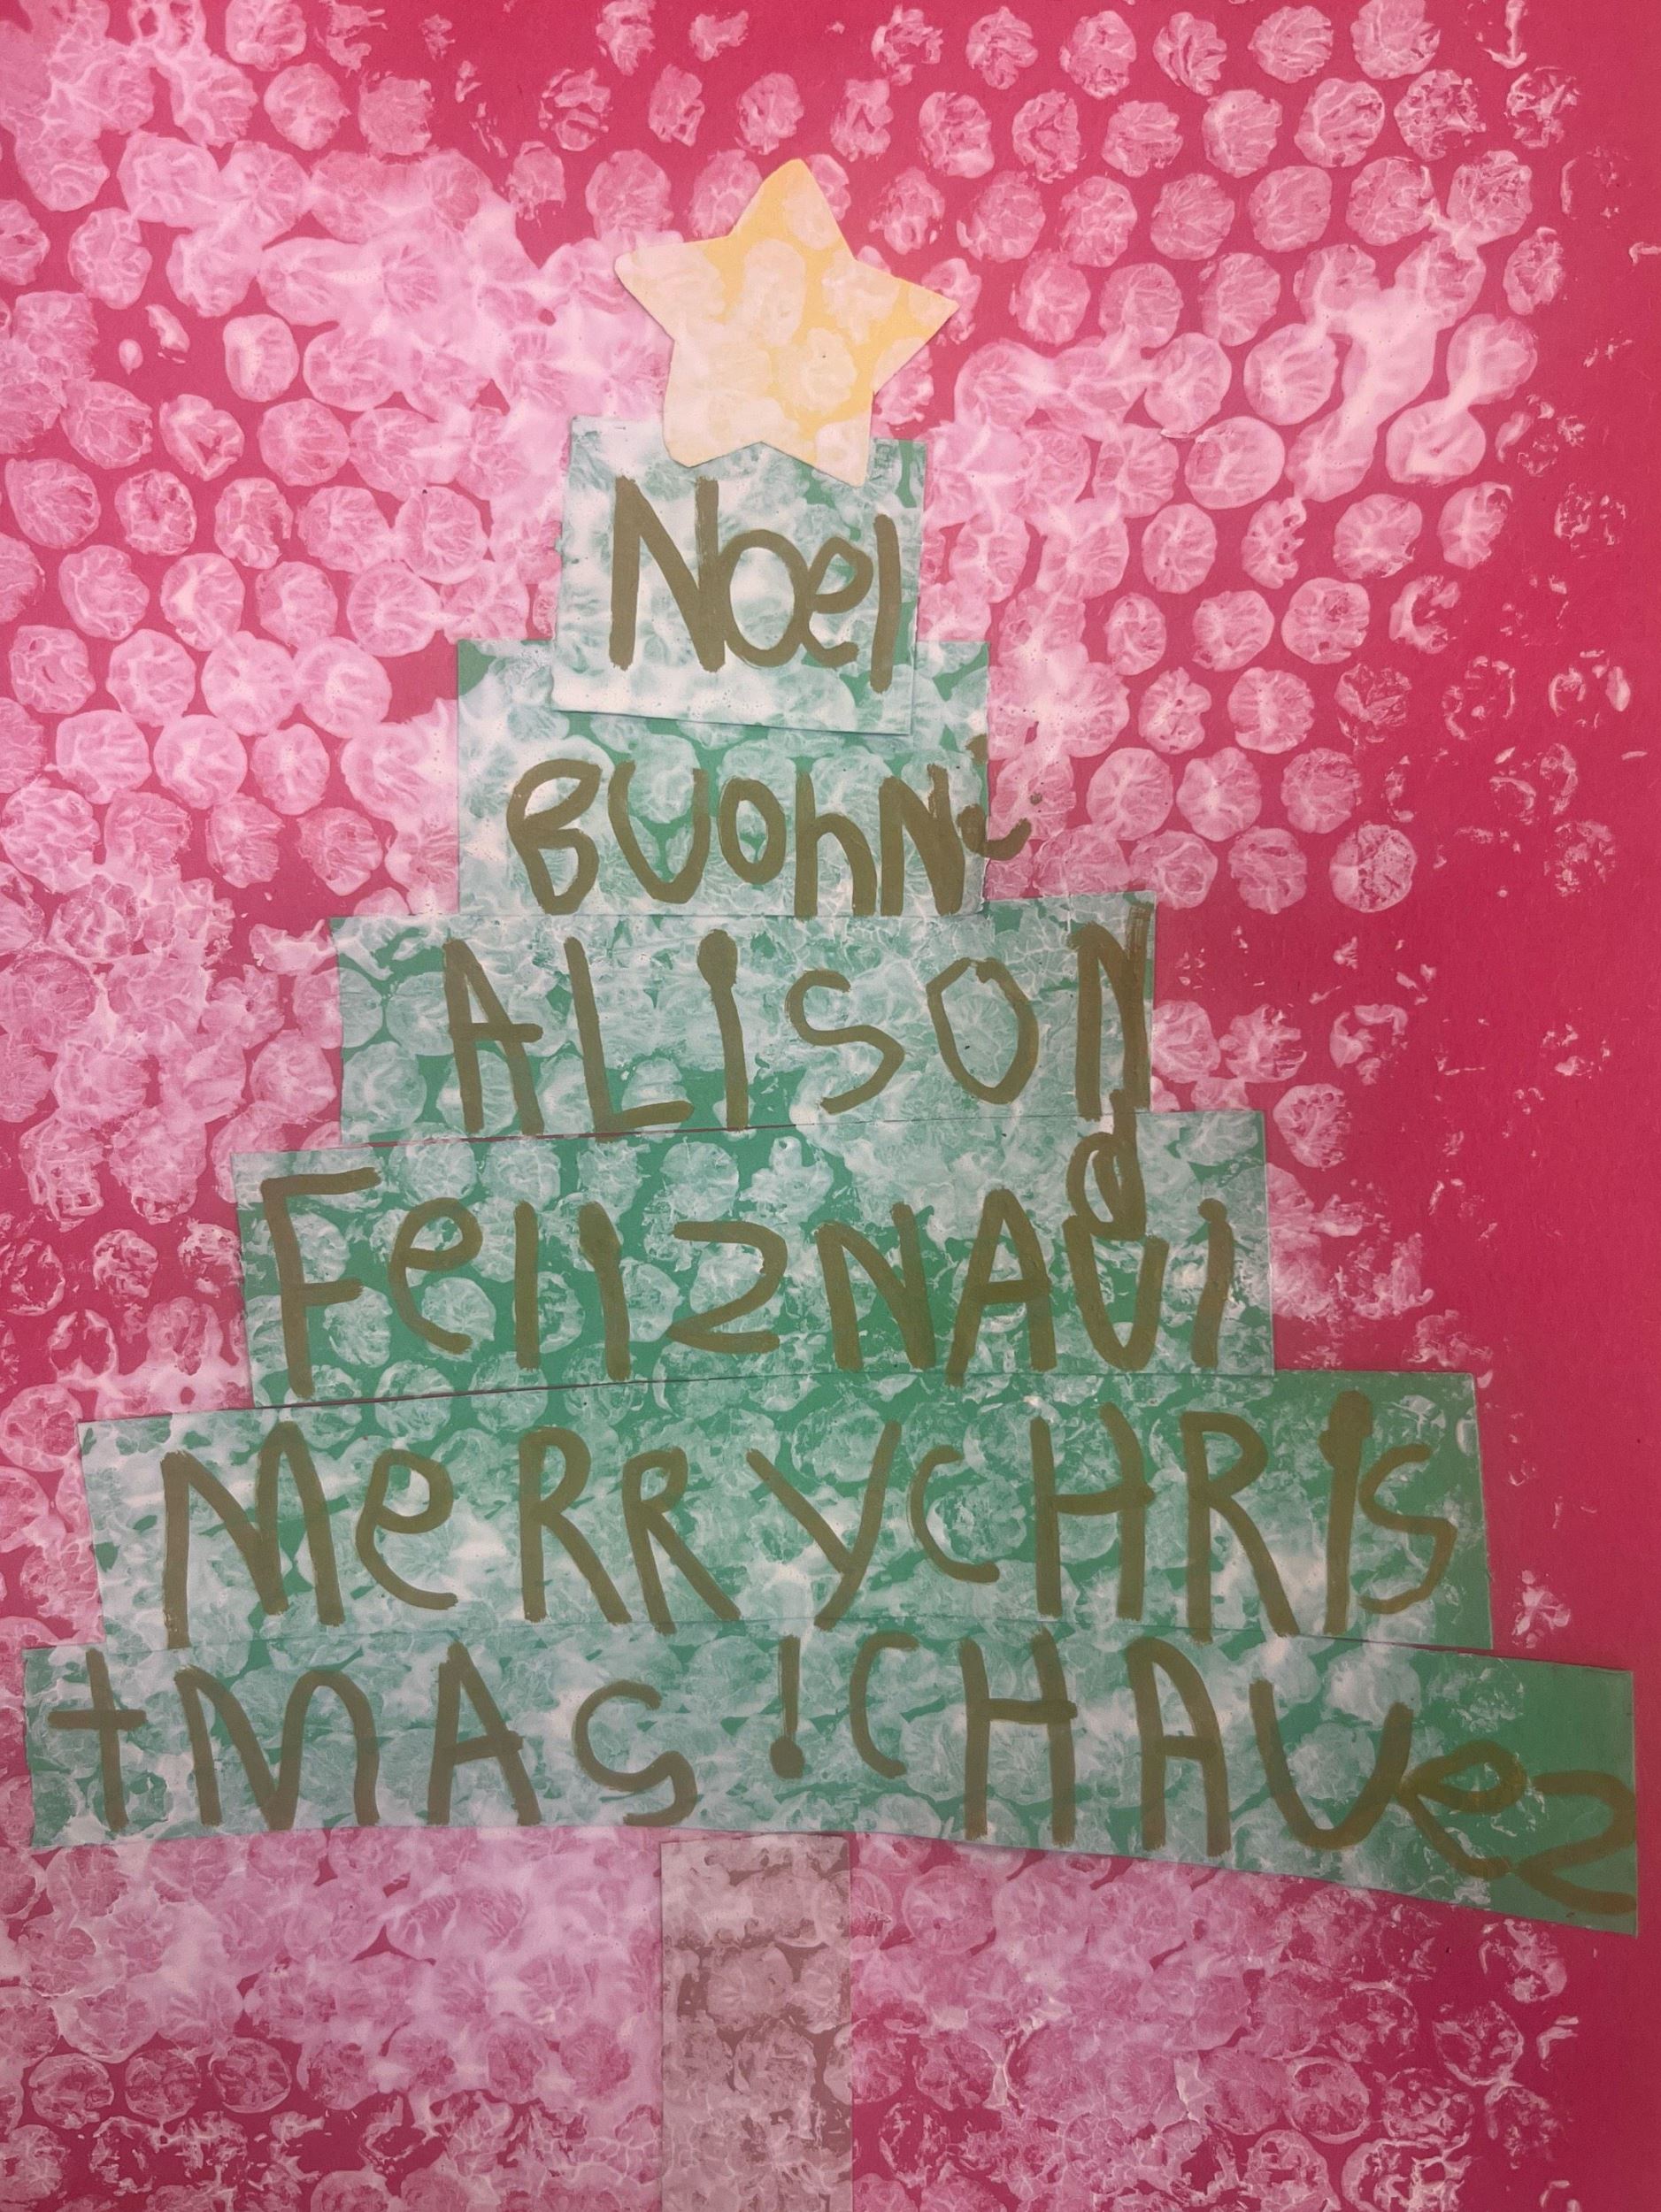 Noel
BUOhNi
ALiSON
FeliZNAVid
MeRRyCHRis
tMAS!CHAVez